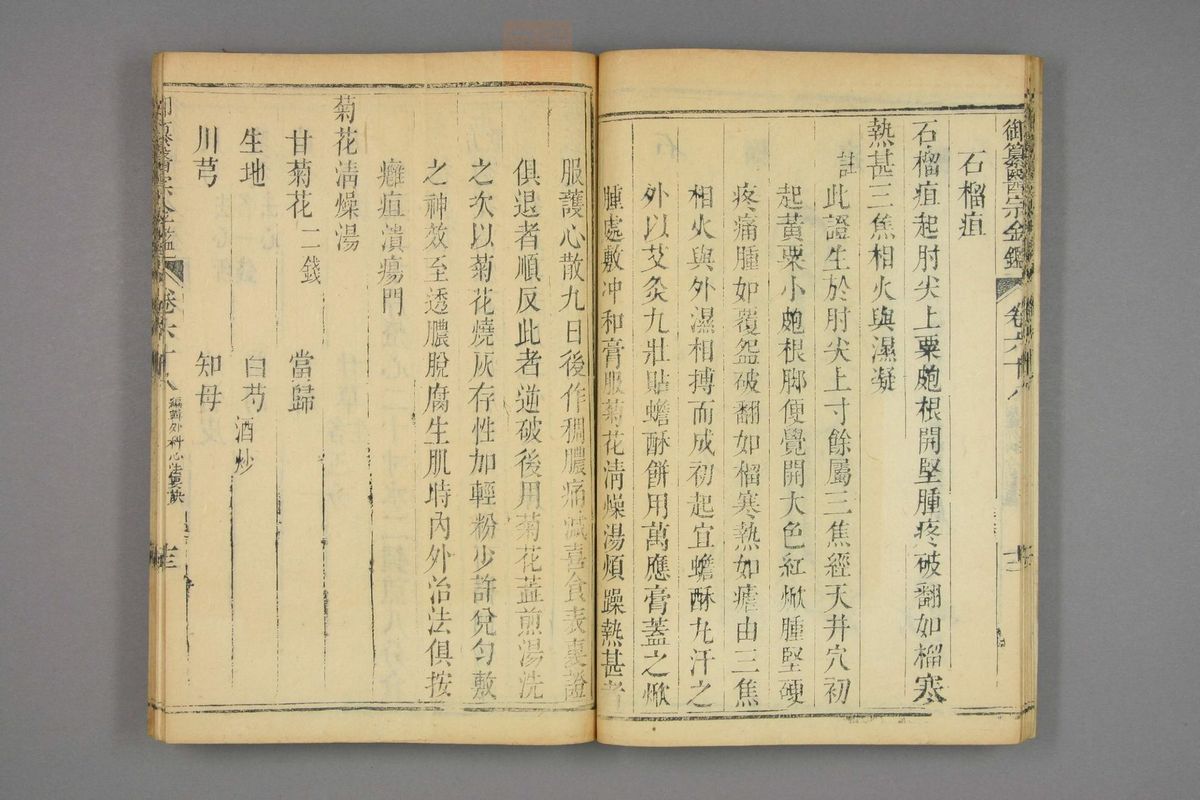 御纂醫宗金鑑 卷六十八 十二
石榴疽
石榴疽起肘尖上粟皰根開堅腫疼破翻如榴寒
熱甚三焦相火與濕凝
註此證生於肘尖上寸餘屬三焦經天井穴初
起黃粟小皰根脚便覺開大色紅焮腫堅硬
疼痛腫如覆盌破翻如榴寒熱如瘧由三焦
相火與外濕相搏而成初起宜蟾酥丸汗之
外以艾灸九壯貼蟾酥餅用萬應膏蓋之焮
腫處敷冲和膏服菊花清燥湯煩躁熱甚者
服護心散九日後作稠膿痛減喜食表裏證
俱退者順反此者逆破後用菊花蕋煎湯洗
之次以菊花燒灰存性加輕粉少許兌勻敷
之神效至透膿脫腐生肌時內外治法俱按
癰疽潰瘍門
菊花清燥湯
甘菊花二錢 當歸
生地 白芍酒炒
川芎 知母
御纂醫宗金鑑 卷六十八 編輯外科心法要訣 十三